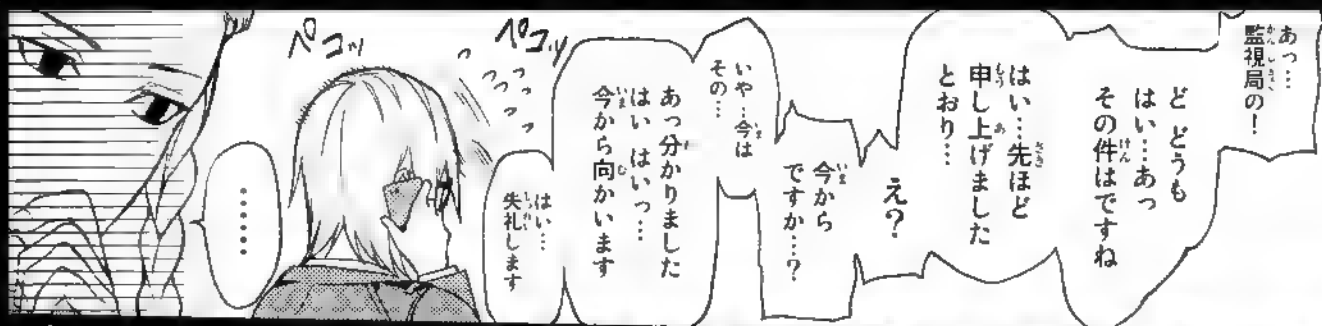 あっ…
監視局の!
どどうも
はい…あっ
その件はですね
はい…先ほど
申し上げました
とおり…
え?
今から
ですか…?
いや…今は
その…
あっ分かりました
はい はいっ…
今から向かいます
はい…
失礼します
ペコッ
ペコッ
……